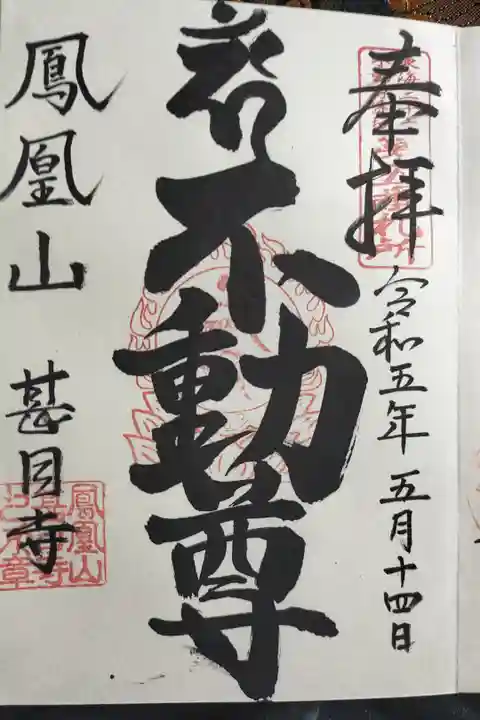 奉拝
令和五年 五月十四日
不動尊
鳳凰山 甚目寺
鳳凰山